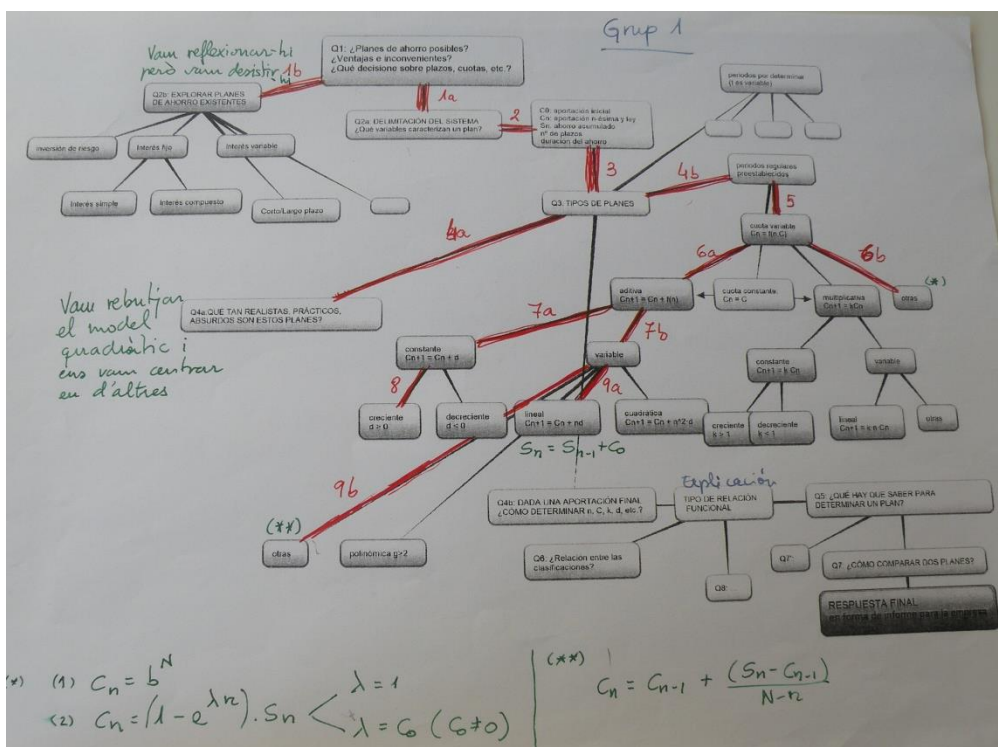 Grup 1
Vam reflexionar-hi
però vam desistir-hi
1b
Q1: ¿Planes de ahorro posibles?
¿Ventajas e inconvenientes?
¿Qué decisione sobre plazos, cuotas, etc.?
Q2b: EXPLORAR PLANES
DE AHORRO EXISTENTES
1a
Q2a: DELIMITACIÓN DEL SISTEMA
¿Qué variables caracterizan un plan?
2
C0: aportación inicial
Cn: aportación n-ésima y ley
Sn: ahorro acumulado
nº de plazos
duración del ahorro
periodos por determinar
(t es variable)
inversión de riesgo
Interés fijo
Interés variable
Interés simple
Interés compuesto
Corto/Largo plazo
3
4b
periodos regulares
preestablecidos
Q3: TIPOS DE PLANES
5
cuota variable
Cn = f(n,C)
4a
6a
6b
Vam rebutjar
el model
quadràtic i
ens vam centrar
en d'altres
Q4a:QUÉ TAN REALISTAS, PRÁCTICOS,
ABSURDOS SON ESTOS PLANES?
aditiva
Cn+1 = Cn + f(n)
cuota constante
Cn = C
multiplicativa
Cn+1 = kCn
(*)
otras
7a
7b
constante
Cn+1 = Cn + d
variable
constante
Cn+1 = k Cn
variable
8
9a
creciente
d > 0
decreciente
d < 0
lineal
Cn+1 = Cn + nd
cuadrática
Cn+1 = Cn + n^2·d
creciente
k > 1
decreciente
k < 1
lineal
Cn+1 = k n Cn
otras
Sn = Sn-1 + C0
9b
(**)
otras
polinómica g>2
Q4b: DADA UNA APORTACIÓN FINAL
¿CÓMO DETERMINAR n, C, k, d, etc.?
Explicación
TIPO DE RELACIÓN
FUNCIONAL
Q5: ¿QUÉ HAY QUE SABER PARA
DETERMINAR UN PLAN?
Q6: ¿Relación entre las
clasificaciones?
Q8: ...
Q7':
Q7: ¿CÓMO COMPARAR DOS PLANES?
RESPUESTA FINAL
en forma de informe para la empresa
(*) (1) Cn = b^N
(2) Cn = (1 - e^λn) · Sn
λ = 1
λ = C0 (C0 ≠ 0)
(**)
Cn = Cn-1 + (Sn - Cn-1) / N-n